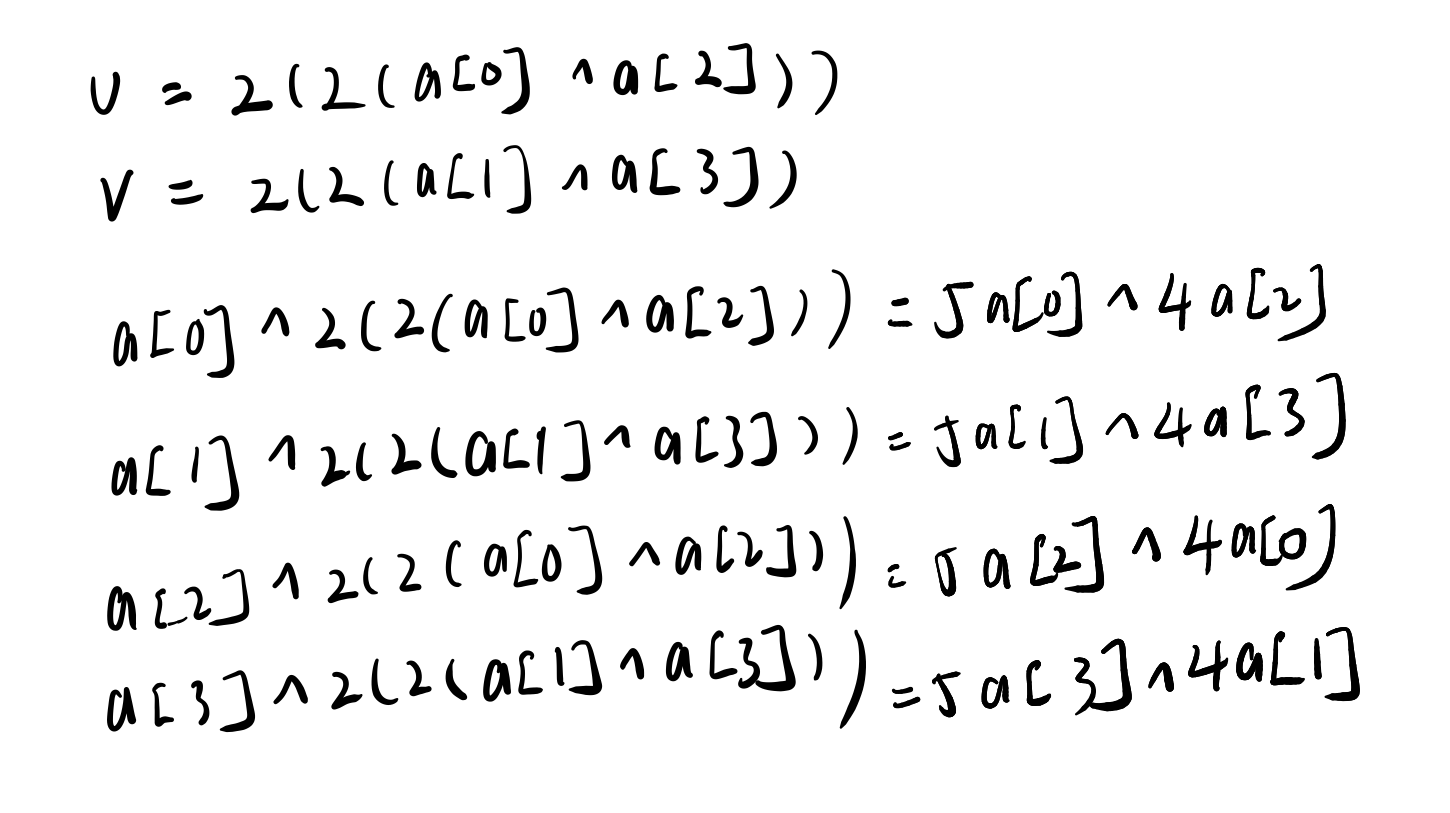 u = 2(2(a[0] ^ a[2]))
v = 2(2(a[1] ^ a[3])
a[0] ^ 2(2(a[0] ^ a[2])) = 5a[0] ^ 4a[2]
a[1] ^ 2(2(a[1] ^ a[3])) = 5a[1] ^ 4a[3]
a[2] ^ 2(2(a[0] ^ a[2])) = 5a[2] ^ 4a[0]
a[3] ^ 2(2(a[1] ^ a[3])) = 5a[3] ^ 4a[1]